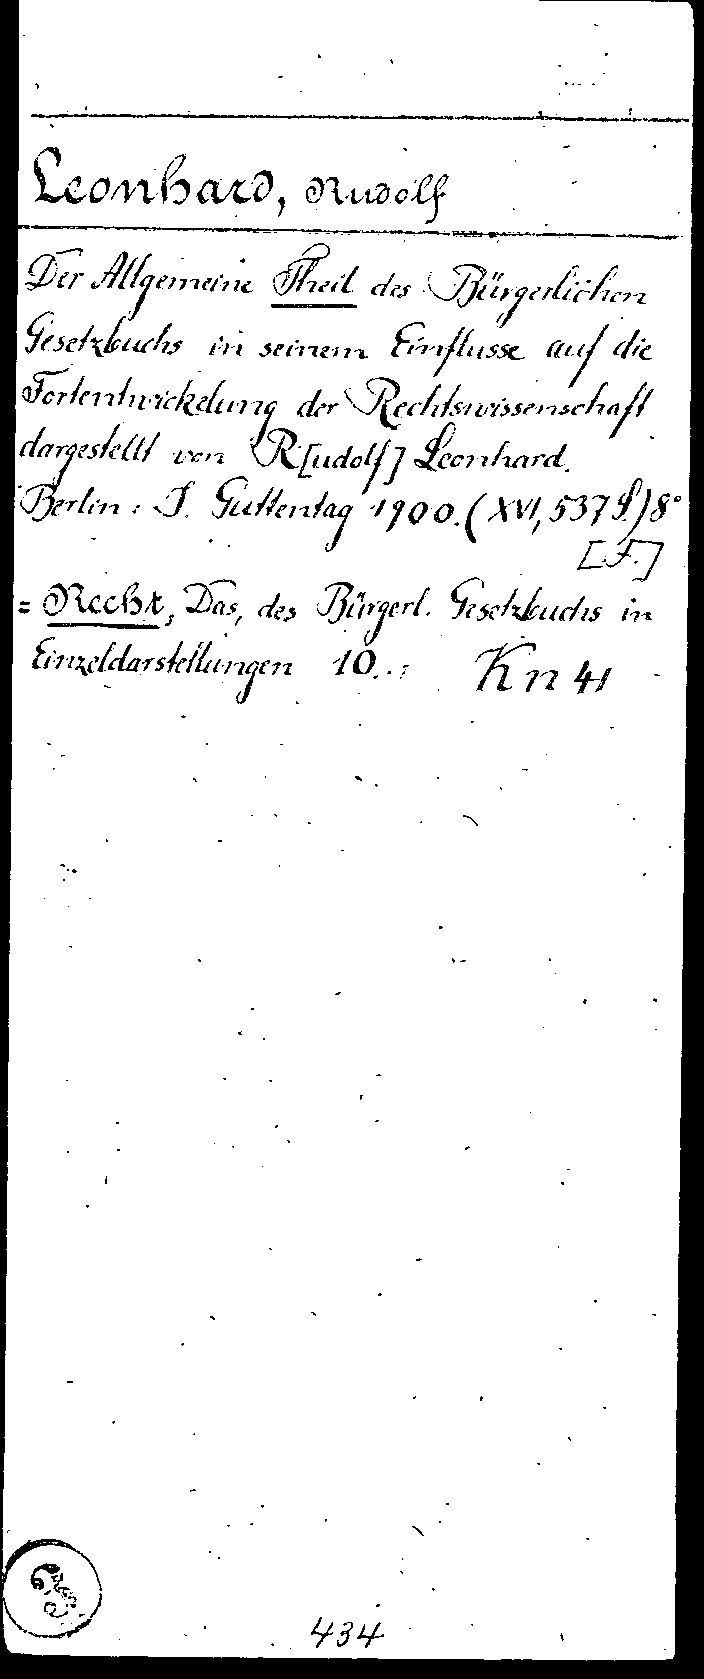 Leonhard, Rudolf
Der Allgemeine Theil des Bürgerlichen
Gesetzbuchs in seinem Einflusse auf die
Fortentwickelung der Rechtswissenschaft
dargestellt von R[udolf] Leonhard.
Berlin: J. Guttentag 1900. (XVI, 537 S.) 8°
[F.]
= Recht, Das, des Bürgerl. Gesetzbuchs in
Einzeldarstellungen 10.: Kn 41
434